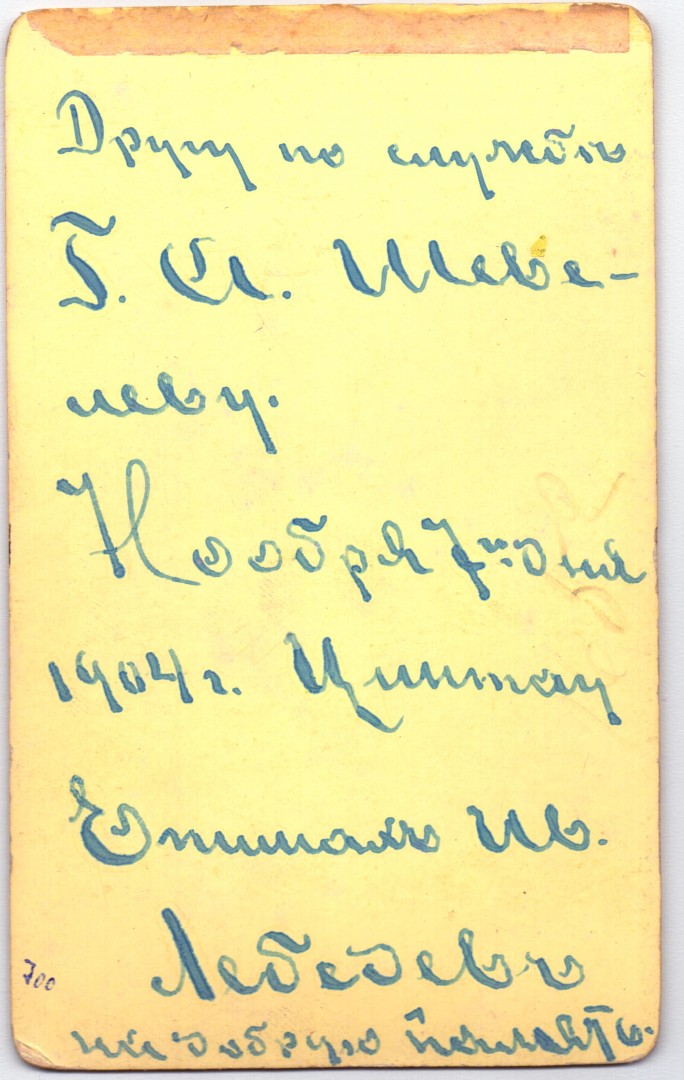 Другу по службѣ
Г. Ст. Шеве-
леву.
Ноября 7го дня
1904 г. Цинтау
Епимахъ Ив.
Лебедевъ
на добрую память.
700